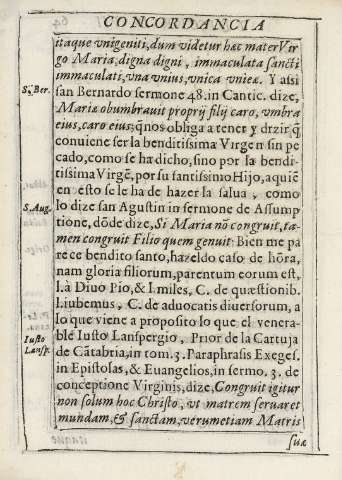 CONCORDANCIA
itaque vnigeniti, dum videtur hæc mater Vir
go Maria, digna digni, immaculata sancti
immaculati, vna vnius, vnica vnieæ. Y assi
S. Ber.
san Bernardo sermone 48. in Cantic. dize,
Mariæ obumbrauit proprij filij caro, vmbra
eius, caro eius; q̃nos obliga a tener y dzir q̃
conuiene ser la benditissima Virgen sin pe
cado, como se ha dicho, sino por la bendi-
tissima Virgẽ, por su santissimo Hijo, aquiẽ
en esto se le ha de hazer la salua, como
S. Aug.
lo dize san Agustin in sermone de Assump
tione, dõde dize, Si Maria nõ congruit, tæ-
men congruit Filio quem genuit: Bien me pa
rece bendito santo, hazeldo caso de hõra,
nam gloria filiorum, parentum eorum est,
l. à Diuo Pio, & l. miles, C. de quæstionib.
l. iubemus, C. de aduocatis diuersorum, a
lo que viene a proposito lo que el venera-
Iusto
Lansp.
ble Iusto Lanspergio, Prior de la Cartuja
de Cãtabria, in tom. 3. Paraphrasis Exeges.
in Epistolas, & Euangelios, in sermo. 3. de
conceptione Virginis, dize, Congruit igitur
non solum hoc Christo, vt matrem seruaret
mundam, & sanctam, verumetiam Matris
suæ